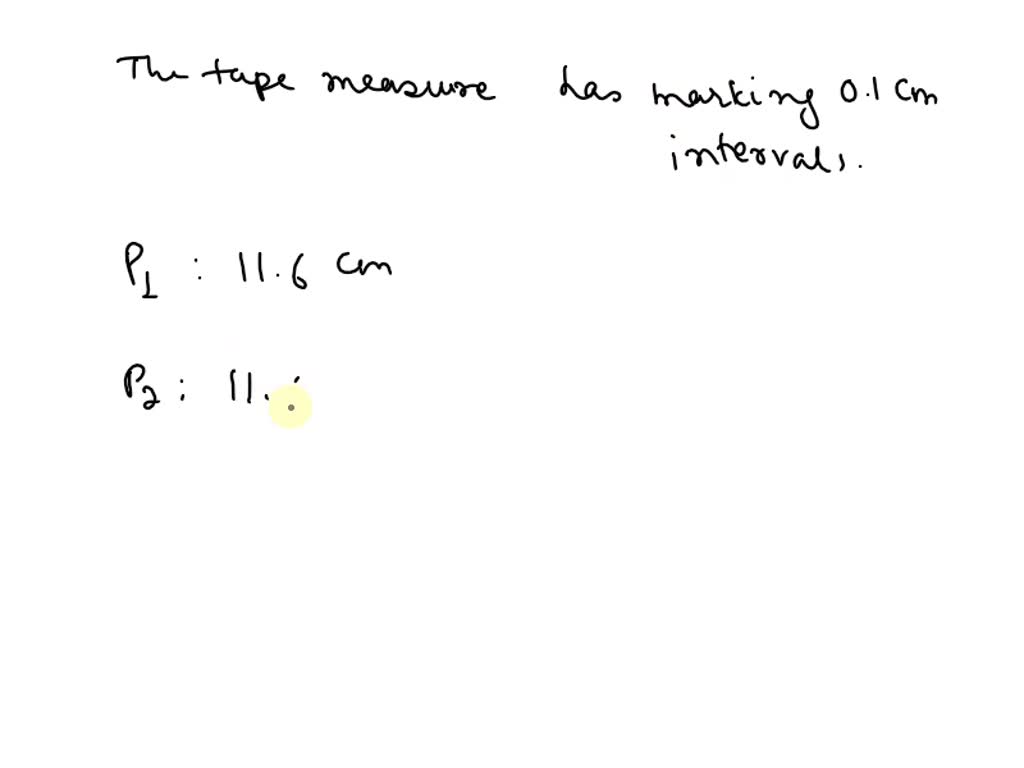 The tape measure has marking 0.1 cm
intervals.
P1 : 11.6 cm
P2 : 11.